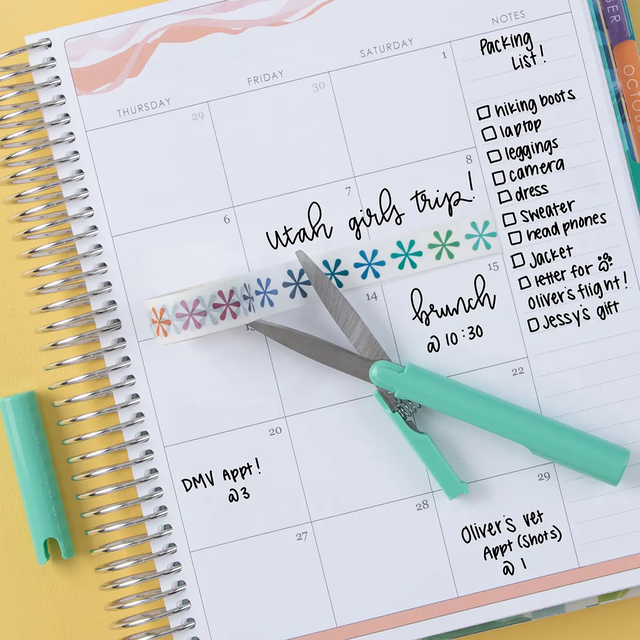 NOTES
Packing
List!
hiking boots
laptop
leggings
camera
dress
sweater
headphones
Jacket
letter for
Oliver's flight!
Jessy's gift
THURSDAY
FRIDAY
SATURDAY
29
30
1
6
7
8
Utah girls trip!
14
15
brunch
@ 10:30
20
22
DMV Appt!
@3
27
28
29
Oliver's vet
Appt (Shots)
@ 1
OCTOBER